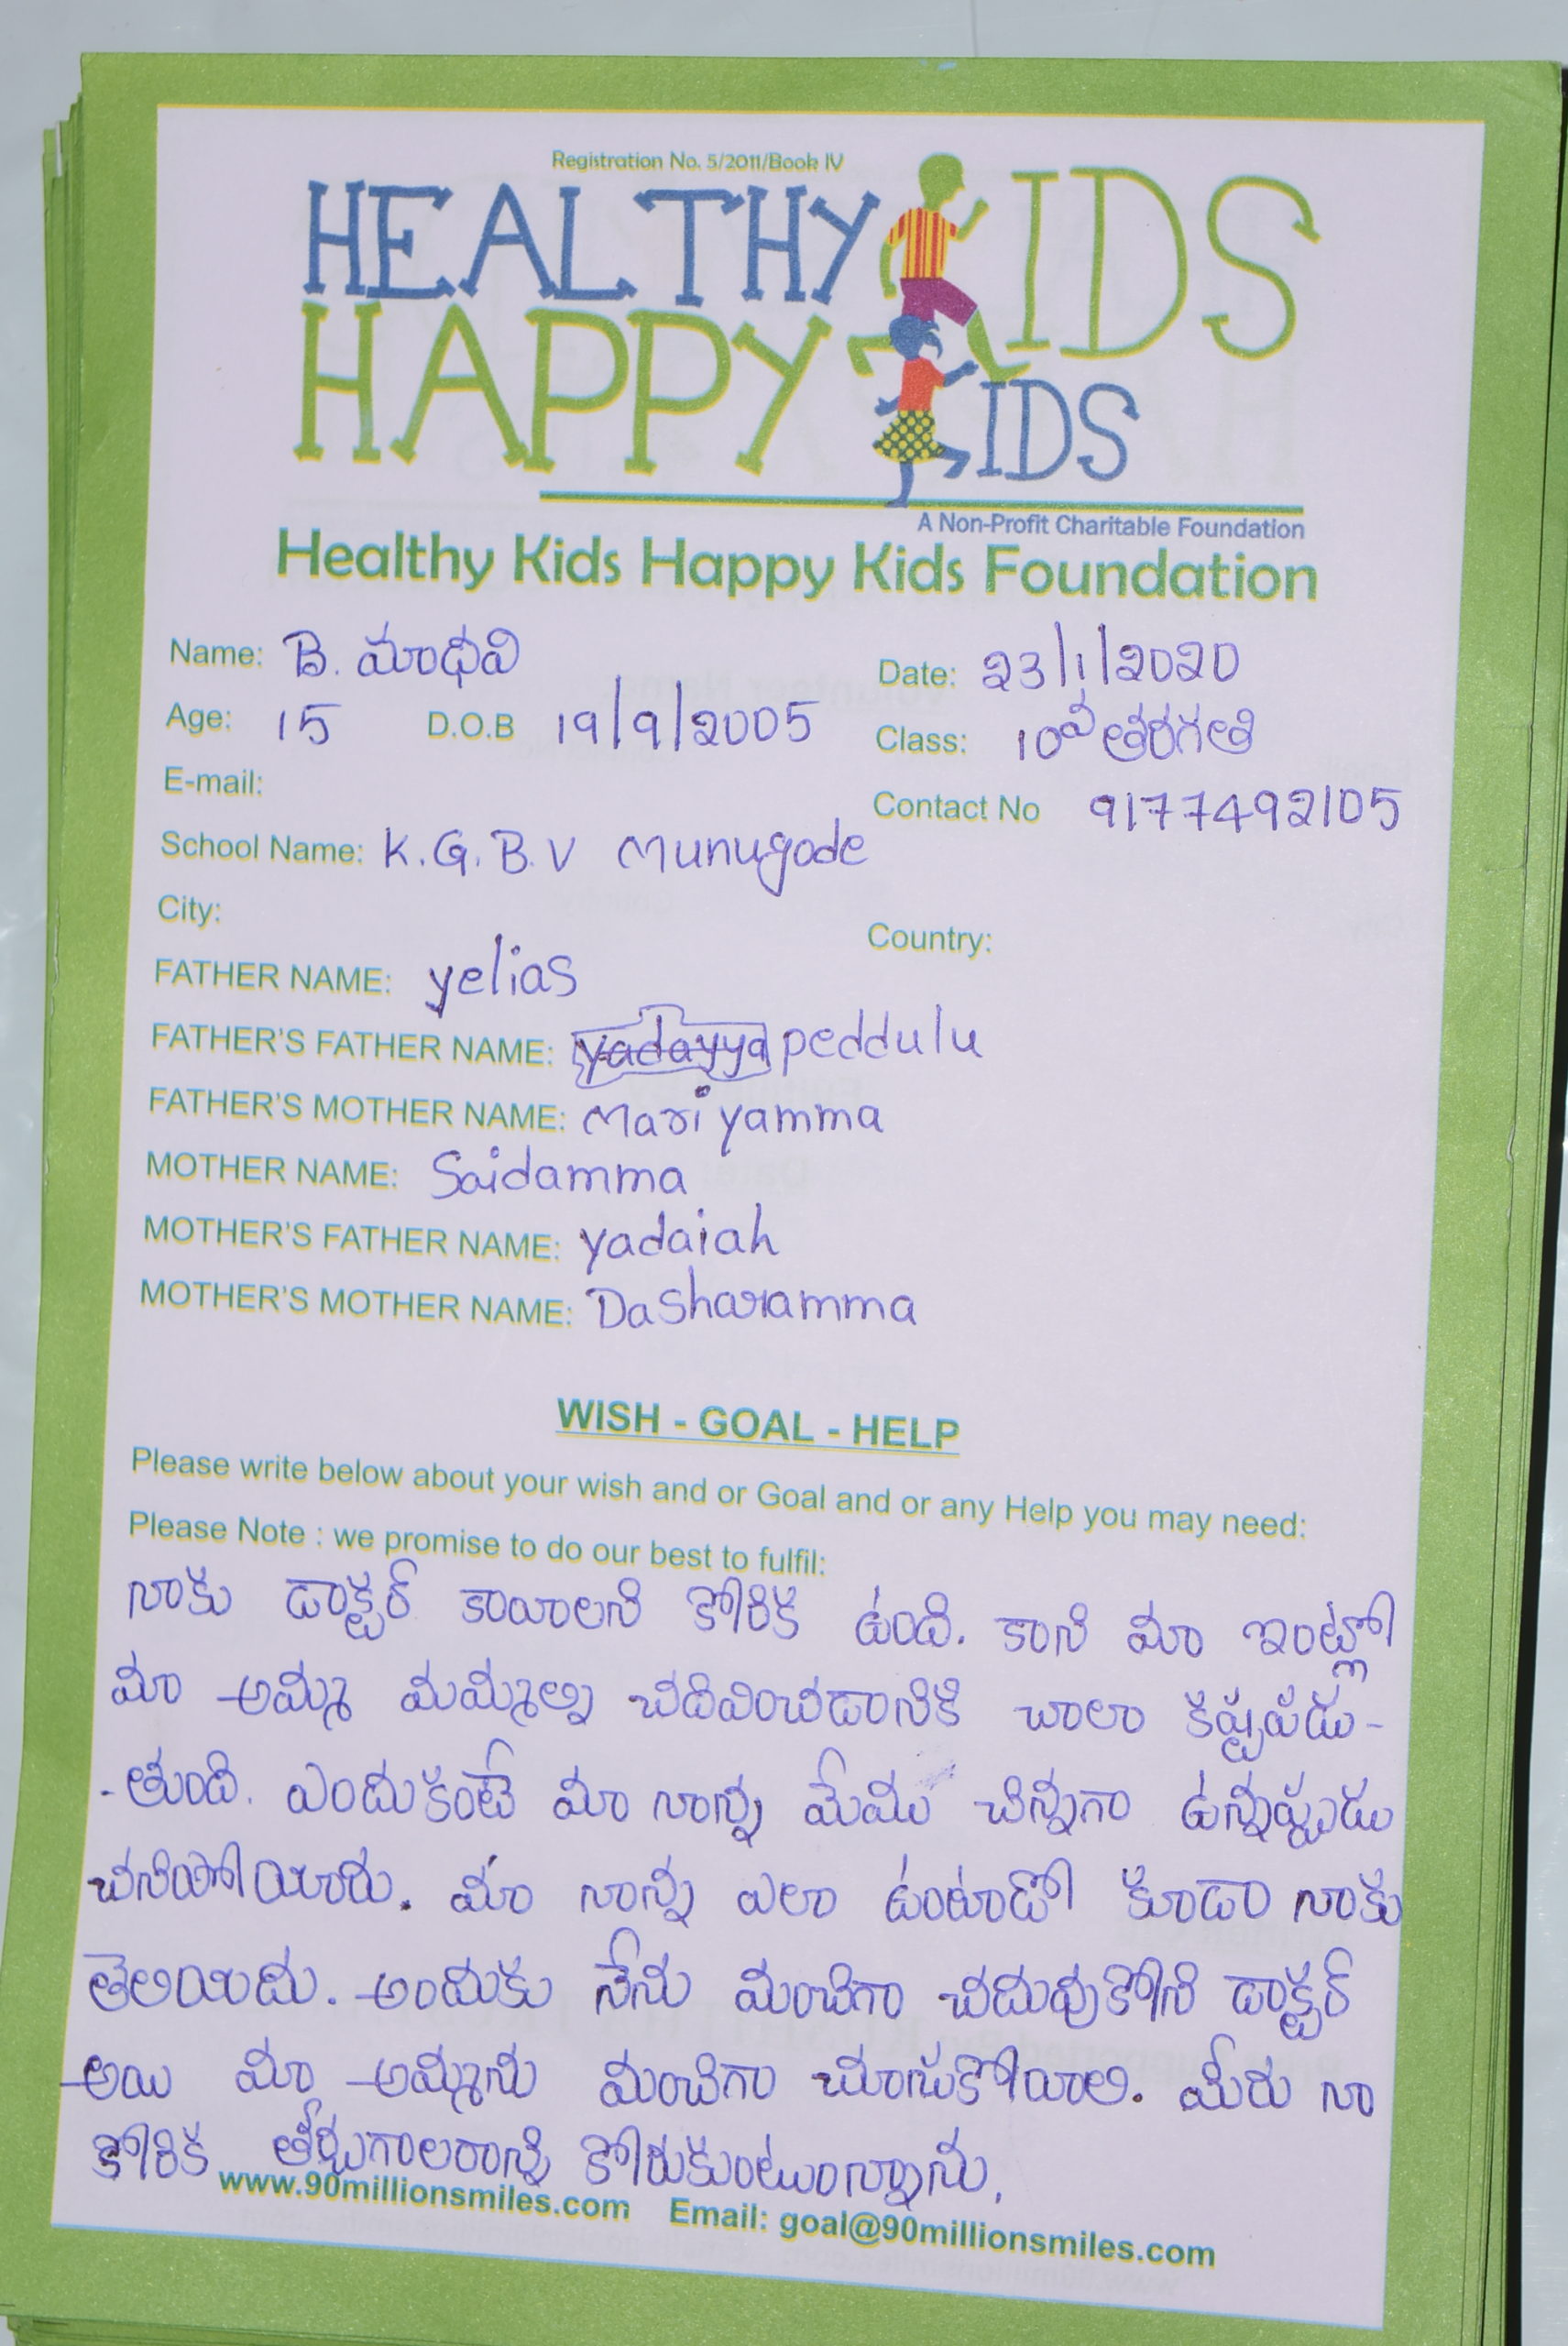 Registration No. 5/2011/Book IV
HEALTHY KIDS
HAPPY KIDS
A Non-Profit Charitable Foundation
Healthy Kids Happy Kids Foundation
Name: B. మాధవి Date: 23/1/2020
Age: 15 D.O.B 19/9/2005 Class: 10వ తరగతి
E-mail: Contact No 9177492105
School Name: K.G.B.V Munugode
City: Country:
FATHER NAME: yelias
FATHER'S FATHER NAME: yadayya peddulu
FATHER'S MOTHER NAME: Mariyamma
MOTHER NAME: Saidamma
MOTHER'S FATHER NAME: yadaiah
MOTHER'S MOTHER NAME: Dasharamma
WISH - GOAL - HELP
Please write below about your wish and or Goal and or any Help you may need:
Please Note : we promise to do our best to fulfil:
నాకు డాక్టర్ కాయాలని కోరిక ఉంది. కాని మా ఇంట్లో
మా అమ్మ మమ్మల్ని చదివించడానికి చాలా కష్టపడు-
-తుంది. ఎందుకంటే మా నాన్న మేము చిన్నగా ఉన్నప్పుడు
చనిపోయారు. మా నాన్న ఎలా ఉంటాడో కూడా నాకు
తెలియదు. అందుకు నేను మంచిగా చదువుకోని డాక్టర్
అయి మా అమ్మను మంచిగా చూసుకోవాలి. మీరు నా
కోరిక తీర్చుగాలరాన్ని కోరుకుంటున్నాను.
www.90millionsmiles.com Email: goal@90millionsmiles.com